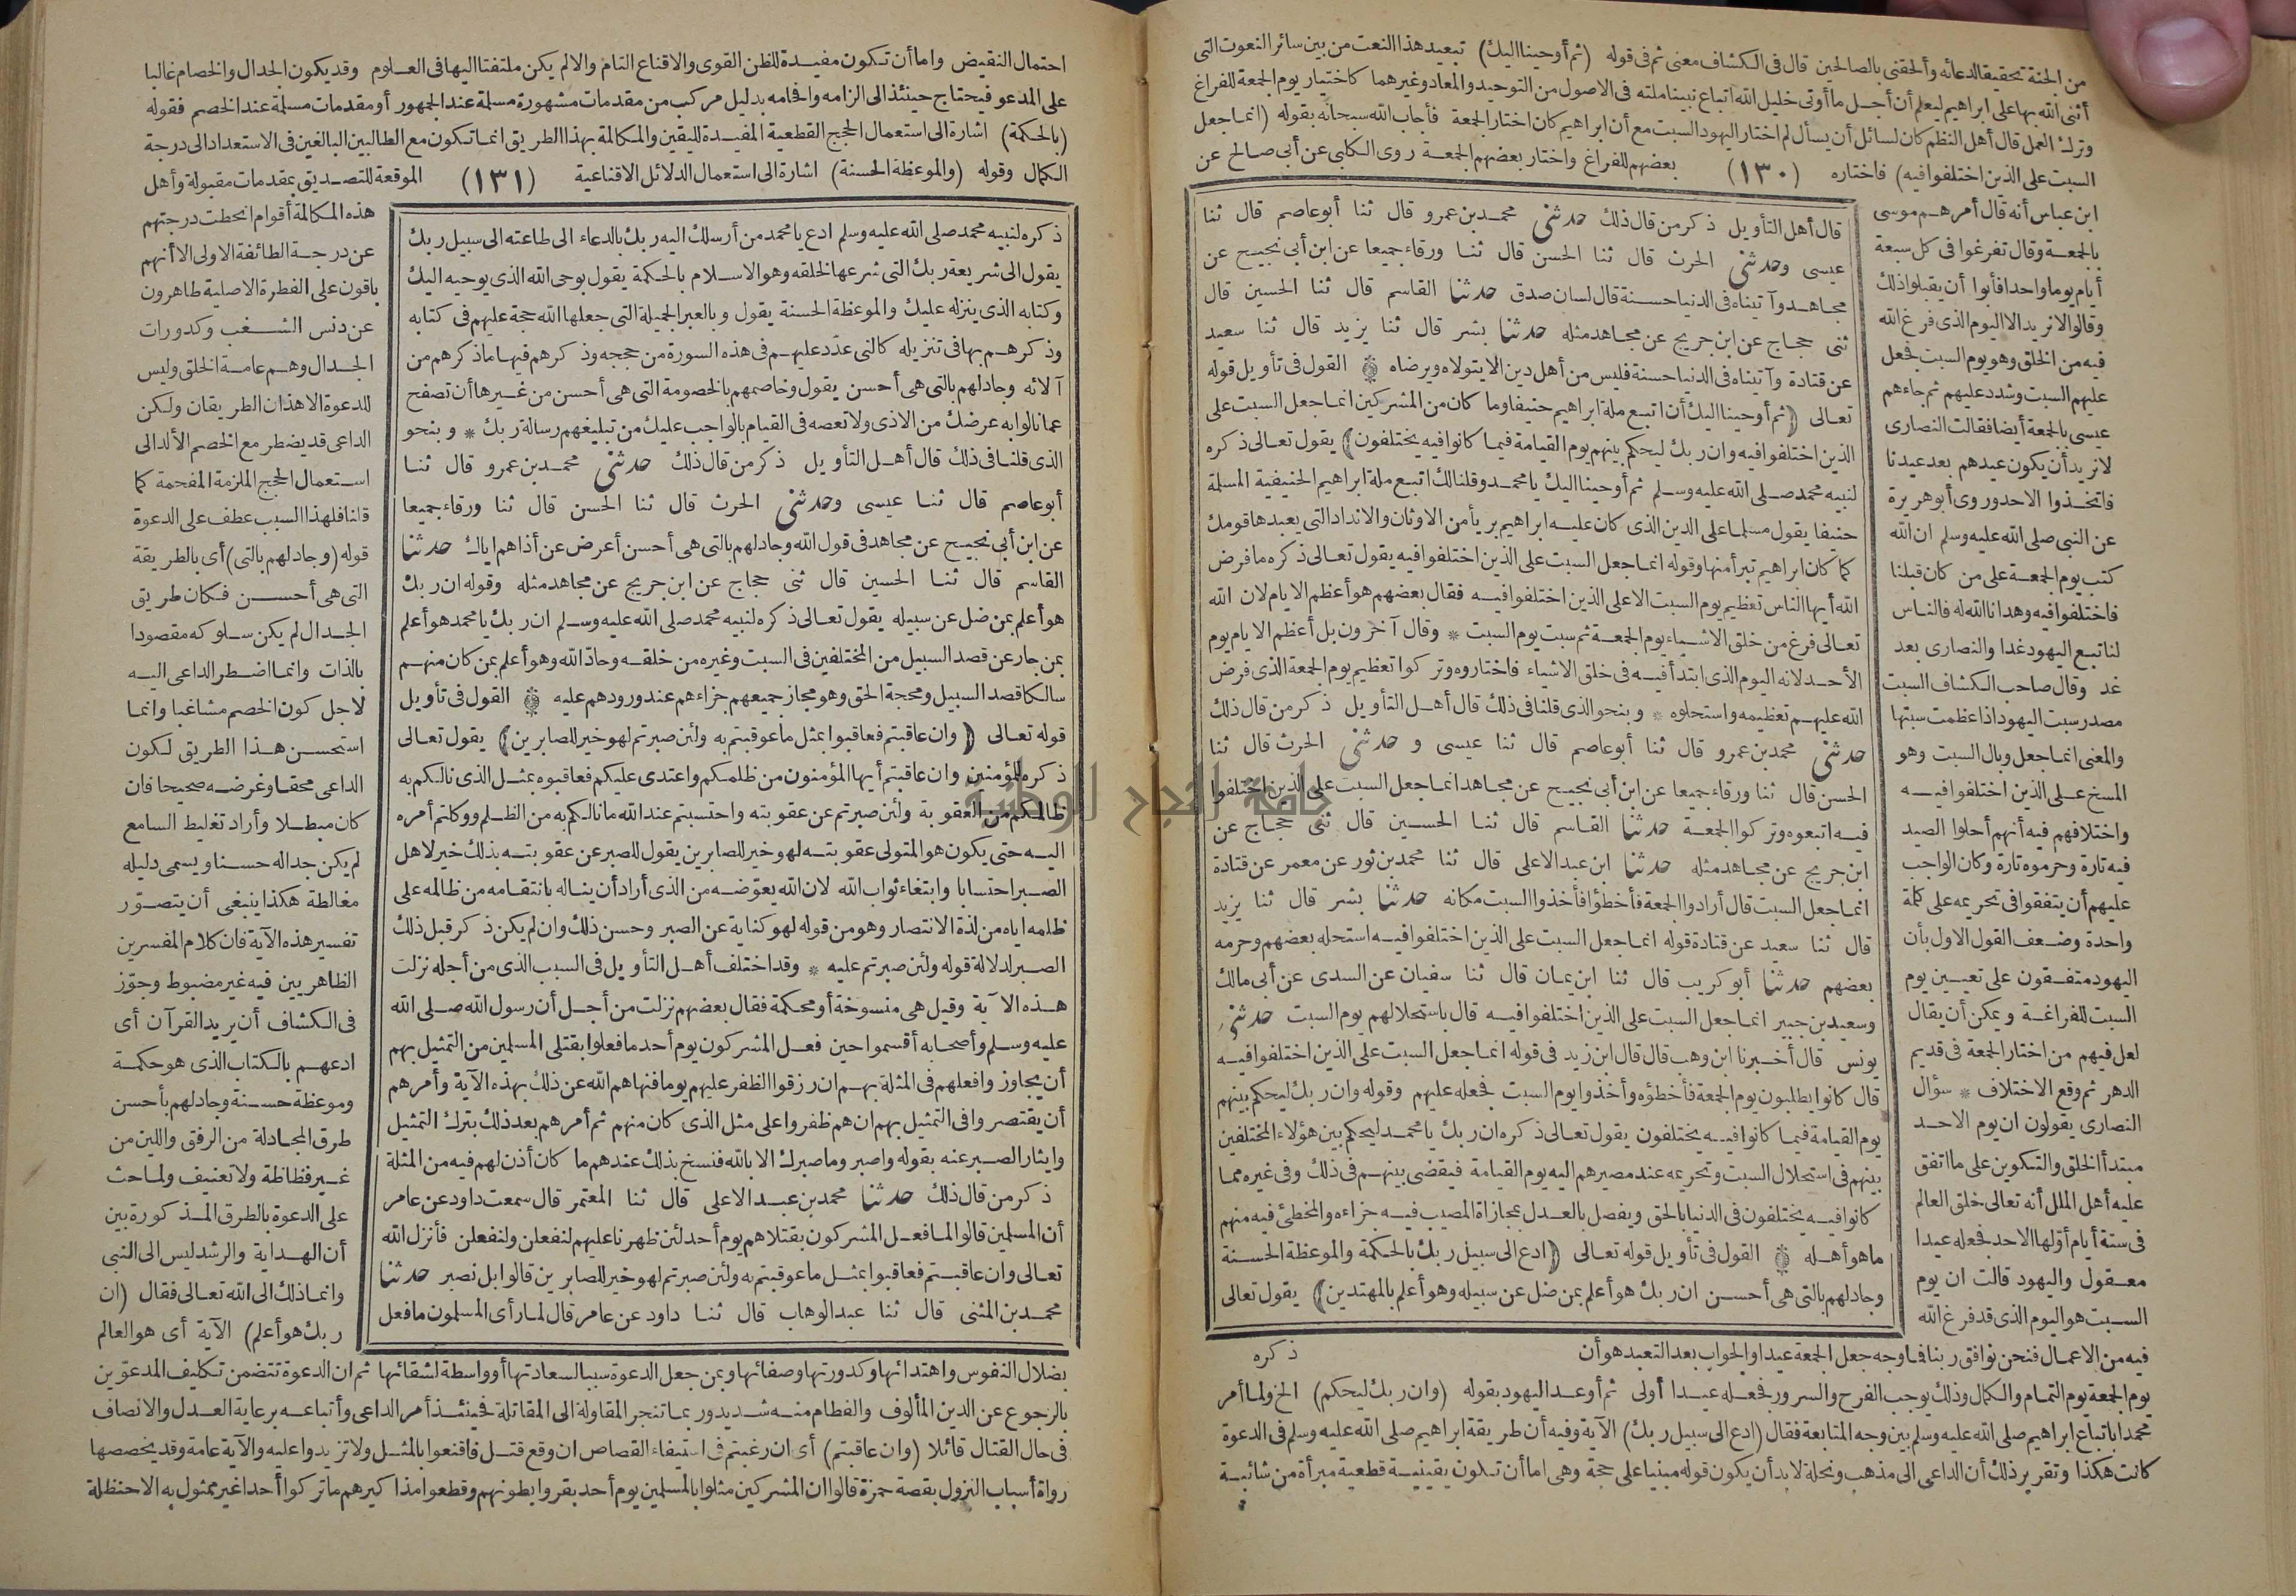 من الجنة تحقيقا لدعائه وألحقني بالصالحين قال في الكشاف معنى ثم في قوله (ثم أوحينا اليك) تبعيد هذا النعت من بين سائر النعوت التي
أثنى الله بها على ابراهيم ليعلم أن أجل ما أوتى خليل الله اتباع نبينا ملته في الاصول من التوحيد والمعاد وغيرهما كاختيار يوم الجمعة للفراغ
وترك العمل قال أهل النظم كان لسائل أن يسأل لم اختار اليهود السبت مع أن ابراهيم كان اختار الجمعة فأجاب الله سبحانه بقوله (انما جعل
السبت على الذين اختلفوا فيه) فاختاره (١٣٠) بعضهم للفراغ واختار بعضهم الجمعة روى الكلبي عن أبي صالح عن
ابن عباس أنه قال أمرهم موسى
بالجمعة وقال تفرغوا في كل سبعة
أيام يوما واحدا فأبوا أن يقبلوا ذلك
وقالوا لا نريد الا اليوم الذي فرغ الله
فيه من الخلق وهو يوم السبت فجعل
عليهم السبت وشدد عليهم ثم جاءهم
عيسى بالجمعة أيضا فقالت النصارى
لا نريد أن يكون عيدهم بعد عيدنا
فاتخذوا الاحد وروى أبو هريرة
عن النبي صلى الله عليه وسلم ان الله
كتب يوم الجمعة على من كان قبلنا
فاختلفوا فيه وهدانا الله له فالناس
لنا تبع اليهود غدا والنصارى بعد
غد وقال صاحب الكشاف السبت
مصدر سبت اليهود اذا عظمت سبتها
والمعنى انما جعل وبال السبت وهو
المسخ على الذين اختلفوا فيه
واختلافهم فيه أنهم أحلوا الصيد
فيه تارة وحرموه تارة وكان الواجب
عليهم أن يتفقوا في تحريمه على كلمة
واحدة وضعف القول الاول بأن
اليهود متفقون على تعيين يوم
السبت للفراغة ويمكن أن يقال
لعل فيهم من اختار الجمعة في قديم
الدهر ثم وقع الاختلاف * سؤال
النصارى يقولون ان يوم الاحد
مبتدأ الخلق والتكوين على ما اتفق
عليه أهل الملل أنه تعالى خلق العالم
في ستة أيام أولها الاحد فجعله عيدا
معقول واليهود قالت ان يوم
السبت هو اليوم الذي قد فرغ الله
قال أهل التأويل ذكر من قال ذلك حدثني محمد بن عمرو قال ثنا أبو عاصم قال ثنا
عيسى وحدثني الحرث قال ثنا الحسن قال ثنا ورقاء جميعا عن ابن أبي نجيح عن
مجاهد وآتيناه في الدنيا حسنة قال لسان صدق حدثنا القاسم قال ثنا الحسين قال
ثنى حجاج عن ابن جريج عن مجاهد مثله حدثنا بشر قال ثنا يزيد قال ثنا سعيد
عن قتادة وآتيناه في الدنيا حسنة فليس من أهل دين الا يتولاه ويرضاه القول في تأويل قوله
تعالى (ثم أوحينا اليك أن اتبع ملة ابراهيم حنيفا وما كان من المشركين انما جعل السبت على
الذين اختلفوا فيه وان ربك ليحكم بينهم يوم القيامة فيما كانوا فيه يختلفون) يقول تعالى ذكره
لنبيه محمد صلى الله عليه وسلم ثم أوحينا اليك يا محمد وقلنا لك اتبع ملة ابراهيم الحنيفية المسلمة
حنيفا يقول مسلما على الدين الذي كان عليه ابراهيم بريأ من الاوثان والانداد التي يعبدها قومك
كما كان ابراهيم تبرأ منها وقوله انما جعل السبت على الذين اختلفوا فيه يقول تعالى ذكره ما فرض
الله أيها الناس تعظيم يوم السبت الا على الذين اختلفوا فيه فقال بعضهم هو أعظم الايام لان الله
تعالى فرغ من خلق الاشياء يوم الجمعة ثم سبت يوم السبت * وقال آخرون بل أعظم الايام يوم
الأحد لانه اليوم الذي ابتدأ فيه في خلق الاشياء فاختاروه وتركوا تعظيم يوم الجمعة الذي فرض
الله عليهم تعظيمه واستحلوه * وبنحو الذي قلنا في ذلك قال أهل التأويل ذكر من قال ذلك
حدثني محمد بن عمرو قال ثنا أبو عاصم قال ثنا عيسى و حدثني الحرث قال ثنا
الحسن قال ثنا ورقاء جميعا عن ابن أبي نجيح عن مجاهد انما جعل السبت على الذين اختلفوا
فيه اتبعوه وتركوا الجمعة حدثنا القاسم قال ثنا الحسين قال ثنى حجاج عن
ابن جريج عن مجاهد مثله حدثنا ابن عبد الاعلى قال ثنا محمد بن ثور عن معمر عن قتادة
انما جعل السبت قال أرادوا الجمعة فأخطؤا فأخذوا السبت مكانه حدثنا بشر قال ثنا يزيد
قال ثنا سعيد عن قتادة قوله انما جعل السبت على الذين اختلفوا فيه استحله بعضهم وحرمه
بعضهم حدثنا أبو كريب قال ثنا ابن يمان قال ثنا سفيان عن السدى عن أبي مالك
وسعيد بن جبير انما جعل السبت على الذين اختلفوا فيه قال باستحلالهم يوم السبت حدثني
يونس قال أخبرنا ابن وهب قال قال ابن زيد في قوله انما جعل السبت على الذين اختلفوا فيه
قال كانوا يطلبون يوم الجمعة فأخطؤه وأخذوا يوم السبت فجعله عليهم وقوله وان ربك ليحكم بينهم
يوم القيامة فيما كانوا فيه يختلفون يقول تعالى ذكره ان ربك يا محمد ليحكم بين هؤلاء المختلفين
بينهم في استحلال السبت وتحريمه عند مصيرهم اليه يوم القيامة فيقضى بينهم في ذلك وفي غيره مما
كانوا فيه يختلفون في الدنيا بالحق ويفصل بالعدل بمجازاة المصيب فيه جزاءه والمخطئ فيه منهم
ما هو أهله القول في تأويل قوله تعالى (ادع الى سبيل ربك بالحكمة والموعظة الحسنة
وجادلهم بالتي هي أحسن ان ربك هو أعلم بمن ضل عن سبيله وهو أعلم بالمهتدين) يقول تعالى
ذكره
فيه من الاعمال فنحن نوافق ربنا فما وجه جعل الجمعة عيدا والجواب بعد التعبد هو أن
يوم الجمعة يوم التمام والكمال وذلك يوجب الفرح والسرور فجعله عيدا أولى ثم أوعد اليهود بقوله (وان ربك ليحكم) الخ ولما أمر
محمدا باتباع ابراهيم صلى الله عليه وسلم بين وجه المتابعة فقال (ادع الى سبيل ربك) الآية وفيه أن طريقة ابراهيم صلى الله عليه وسلم في الدعوة
كانت هكذا وتقرير ذلك أن الداعي الى مذهب ونحلة لا بد أن يكون قوله مبنيا على حجة وهي اما أن تكون يقينية قطعية مبرأة من شائبة
احتمال النقيض واما أن تكون مفيدة للظن القوى والاقناع التام والا لم يكن ملتفتا اليها في العلوم وقد يكون الجدال والخصام غالبا
على المدعو فيحتاج حينئذ الى الزامه وافحامه بدليل مركب من مقدمات مشهورة مسلمة عند الجمهور أو مقدمات مسلمة عند الخصم فقوله
(بالحكمة) اشارة الى استعمال الحجج القطعية المفيدة لليقين والمكالمة بهذا الطريق انما تكون مع الطالبين البالغين في الاستعداد الى درجة
الكمال وقوله (والموعظة الحسنة) اشارة الى استعمال الدلائل الاقناعية (١٣١) الموقعة للتصديق بمقدمات مقبولة وأهل
ذكره لنبيه محمد صلى الله عليه وسلم ادع يا محمد من أرسلك اليه ربك بالدعاء الى طاعته الى سبيل ربك
يقول الى شريعة ربك التي شرعها لخلقه وهو الاسلام بالحكمة يقول بوحى الله الذي يوحيه اليك
وكتابه الذي ينزله عليك والموعظة الحسنة يقول وبالعبر الجميلة التي جعلها الله حجة عليهم في كتابه
وذكرهم بها في تنزيله كالتي عدد عليهم في هذه السورة من حججه وذكرهم فيها ما ذكرهم من
آلائه وجادلهم بالتي هي أحسن يقول وخاصمهم بالخصومة التي هي أحسن من غيرها أن تصفح
عما نالوا به عرضك من الاذى ولا تعصه في القيام بالواجب عليك من تبليغهم رسالة ربك * وبنحو
الذي قلنا في ذلك قال أهل التأويل ذكر من قال ذلك حدثني محمد بن عمرو قال ثنا
أبو عاصم قال ثنا عيسى وحدثني الحرث قال ثنا الحسن قال ثنا ورقاء جميعا
عن ابن أبي نجيح عن مجاهد في قول الله وجادلهم بالتي هي أحسن أعرض عن أذاهم اياك حدثنا
القاسم قال ثنا الحسين قال ثنى حجاج عن ابن جريج عن مجاهد مثله وقوله ان ربك
هو أعلم بمن ضل عن سبيله يقول تعالى ذكره لنبيه محمد صلى الله عليه وسلم ان ربك يا محمد هو أعلم
بمن جار عن قصد السبيل من المختلفين في السبت وغيره من خلقه وحاد الله وهو أعلم بمن كان منهم
سالكا قصد السبيل ومحجة الحق وهو مجاز جميعهم جزاءهم عند ورودهم عليه القول في تأويل
قوله تعالى (وان عاقبتم فعاقبوا بمثل ما عوقبتم به ولئن صبرتم لهو خير للصابرين) يقول تعالى
ذكره للمؤمنين وان عاقبتم أيها المؤمنون من ظلمكم واعتدى عليكم فعاقبوه بمثل الذي نالكم به
ظالمكم من العقوبة ولئن صبرتم عن عقوبته واحتسبتم عند الله ما نالكم به من الظلم ووكلتم أمره
اليه حتى يكون هو المتولى عقوبته لهو خير للصابرين يقول للصبر عن عقوبته بذلك خير لاهل
الصبر احتسابا وابتغاء ثواب الله لان الله يعوضه من الذي أراد أن يناله بانتقامه من ظالمه على
ظلمه اياه من لذة الانتصار وهو من قوله لهو كناية عن الصبر وحسن ذلك وان لم يكن ذكر قبل ذلك
الصبر لدلالة قوله ولئن صبرتم عليه * وقد اختلف أهل التأويل في السبب الذي من أجله نزلت
هذه الآية وقيل هي منسوخة أو محكمة فقال بعضهم نزلت من أجل أن رسول الله صلى الله
عليه وسلم وأصحابه أقسموا حين فعل المشركون يوم أحد ما فعلوا بقتلى المسلمين من التمثيل بهم
أن يجاوزوا فعلهم في المثلة بهم ان رزقوا الظفر عليهم يوما فنهاهم الله عن ذلك بهذه الآية وأمرهم
أن يقتصروا في التمثيل بهم ان هم ظفروا على مثل الذي كان منهم ثم أمرهم بعد ذلك بترك التمثيل
وايثار الصبر عنه بقوله واصبر وما صبرك الا بالله فنسخ بذلك عندهم ما كان أذن لهم فيه من المثلة
ذكر من قال ذلك حدثنا محمد بن عبد الاعلى قال ثنا المعتمر قال سمعت داود عن عامر
أن المسلمين قالوا لما فعل المشركون بقتلاهم يوم أحد لئن ظهرنا عليهم لنفعلن ولنفعلن فأنزل الله
تعالى وان عاقبتم فعاقبوا بمثل ما عوقبتم به ولئن صبرتم لهو خير للصابرين قالوا بل نصبر حدثنا
محمد بن المثنى قال ثنا عبد الوهاب قال ثنا داود عن عامر قال لما رأى المسلمون ما فعل
هذه المكالمة أقوام انحطت درجتهم
عن درجة الطائفة الاولى الا أنهم
باقون على الفطرة الاصلية طاهرون
عن دنس الشغب وكدورات
الجدال وهم عامة الخلق وليس
للدعوة الا هذان الطريقان ولكن
الداعى قد يضطر مع الخصم الألد الى
استعمال الحجج الملزمة المفحمة كما
قلنا فلهذا السبب عطف على الدعوة
قوله (وجادلهم بالتي) أي بالطريقة
التي هي أحسن فكان طريق
الجدال لم يكن سلوكه مقصودا
بالذات وانما اضطر الداعي اليه
لاجل كون الخصم مشاغبا وانما
استحسن هذا الطريق لكون
الداعى محقا وغرضه صحيحا فان
كان مبطلا وأراد تغليط السامع
لم يكن جداله حسنا ويسمى دليله
مغالطة هكذا ينبغي أن يتصور
تفسير هذه الآية فان كلام المفسرين
الظاهريين فيه غير مضبوط وجوز
في الكشاف أن يريد القرآن أي
ادعهم بالكتاب الذي هو حكمة
وموعظة حسنة وجادلهم بأحسن
طرق المجادلة من الرفق واللين من
غير فظاظة ولا تعنيف ولما حث
على الدعوة بالطرق المذكورة بين
أن الهداية والرشد ليس الى النبي
وانما ذلك الى الله تعالى فقال (ان
ربك هو أعلم) الآية أي هو العالم
بضلال النفوس واهتدائها وكدورتها وصفائها وبمن جعل الدعوة سببا لسعادتها أو واسطة لشقائها ثم ان الدعوة تتضمن تكليف المدعوين
بالرجوع عن الدين المألوف والفطام منه شديد وربما تنجر المقاولة الى المقاتلة فحينئذ أمر الداعى وأتباعه برعاية العدل والانصاف
في حال القتال قائلا (وان عاقبتم) أي ان رغبتم في استيفاء القصاص ان وقع قتل فاقنعوا بالمثل ولا تزيدوا عليه والآية عامة وقد يخصصها
رواة أسباب النزول بقصة حمزة قالوا ان المشركين مثلوا بالمسلمين يوم أحد بقروا بطونهم وقطعوا مذاكيرهم ما تركوا أحدا غير ممثول به الا حنظلة
جامعة النجاح الوطنية